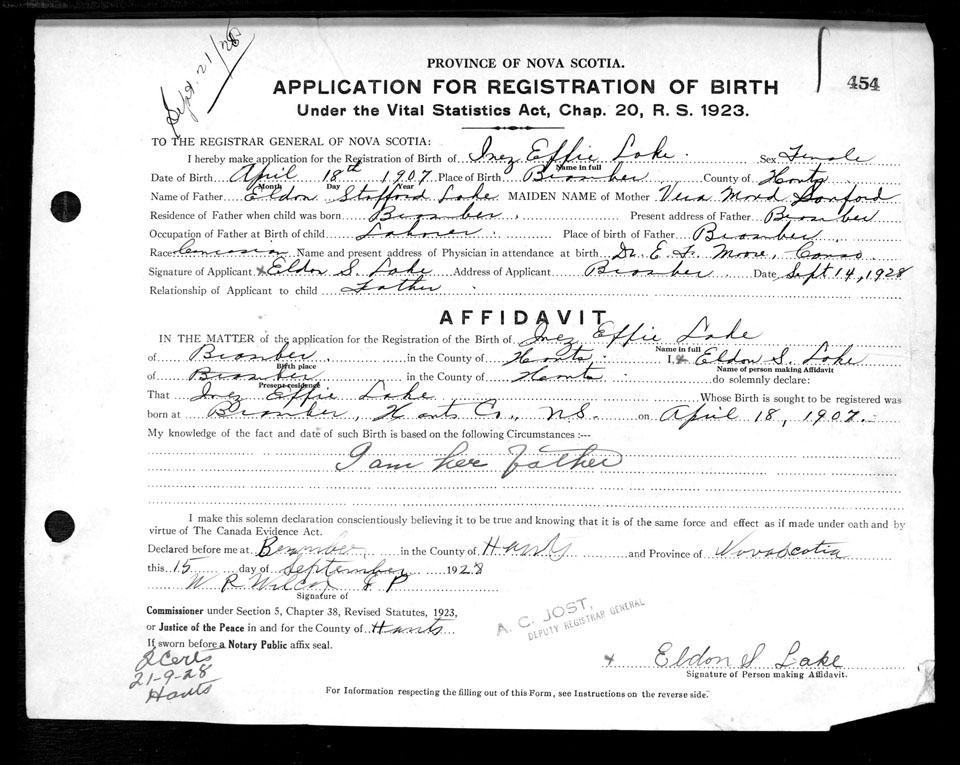 Sept. 21/28
454
PROVINCE OF NOVA SCOTIA.
APPLICATION FOR REGISTRATION OF BIRTH
Under the Vital Statistics Act, Chap. 20, R. S. 1923.
TO THE REGISTRAR GENERAL OF NOVA SCOTIA:
I hereby make application for the Registration of Birth of Inez Effie Lake. Sex Female
Name in full
Date of Birth April 18th 1907 Place of Birth Bramber County of Hants
Month Day Year
Name of Father Eldon Stafford Lake MAIDEN NAME of Mother Vera Sanford
Residence of Father when child was born Bramber. Present address of Father Bramber
Occupation of Father at Birth of child Laborer. Place of birth of Father Bramber
Race Caucasian Name and present address of Physician in attendance at birth Dr. E. F. Moore,
Signature of Applicant x Eldon S. Lake Address of Applicant Bramber Date Sept 14, 1928
Relationship of Applicant to child Father
AFFIDAVIT
IN THE MATTER of the application for the Registration of the Birth of Inez Effie Lake
Name in full
of Bramber. in the County of Hants. I, x Eldon S. Lake
Birth place Name of person making Affidavit
of Bramber in the County of Hants do solemnly declare:
Present residence
That Inez Effie Lake Whose Birth is sought to be registered was
born at Bramber, Hants Co., N.S. on April 18, 1907.
My knowledge of the fact and date of such Birth is based on the following Circumstances :---
I am her father
I make this solemn declaration conscientiously believing it to be true and knowing that it is of the same force and effect as if made under oath and by
virtue of The Canada Evidence Act.
Declared before me at in the County of Hants and Province of Nova Scotia
this 15 day of September 1928
W R Wilcox J P
Signature of
Commissioner under Section 5, Chapter 38, Revised Statutes, 1923,
or Justice of the Peace in and for the County of Hants
If sworn before a Notary Public affix seal.
A. C. JOST,
DEPUTY REGISTRAR GENERAL
2 Certs
21-9-28
Hants
x Eldon S Lake
Signature of Person making Affidavit.
For Information respecting the filling out of this Form, see Instructions on the reverse side.